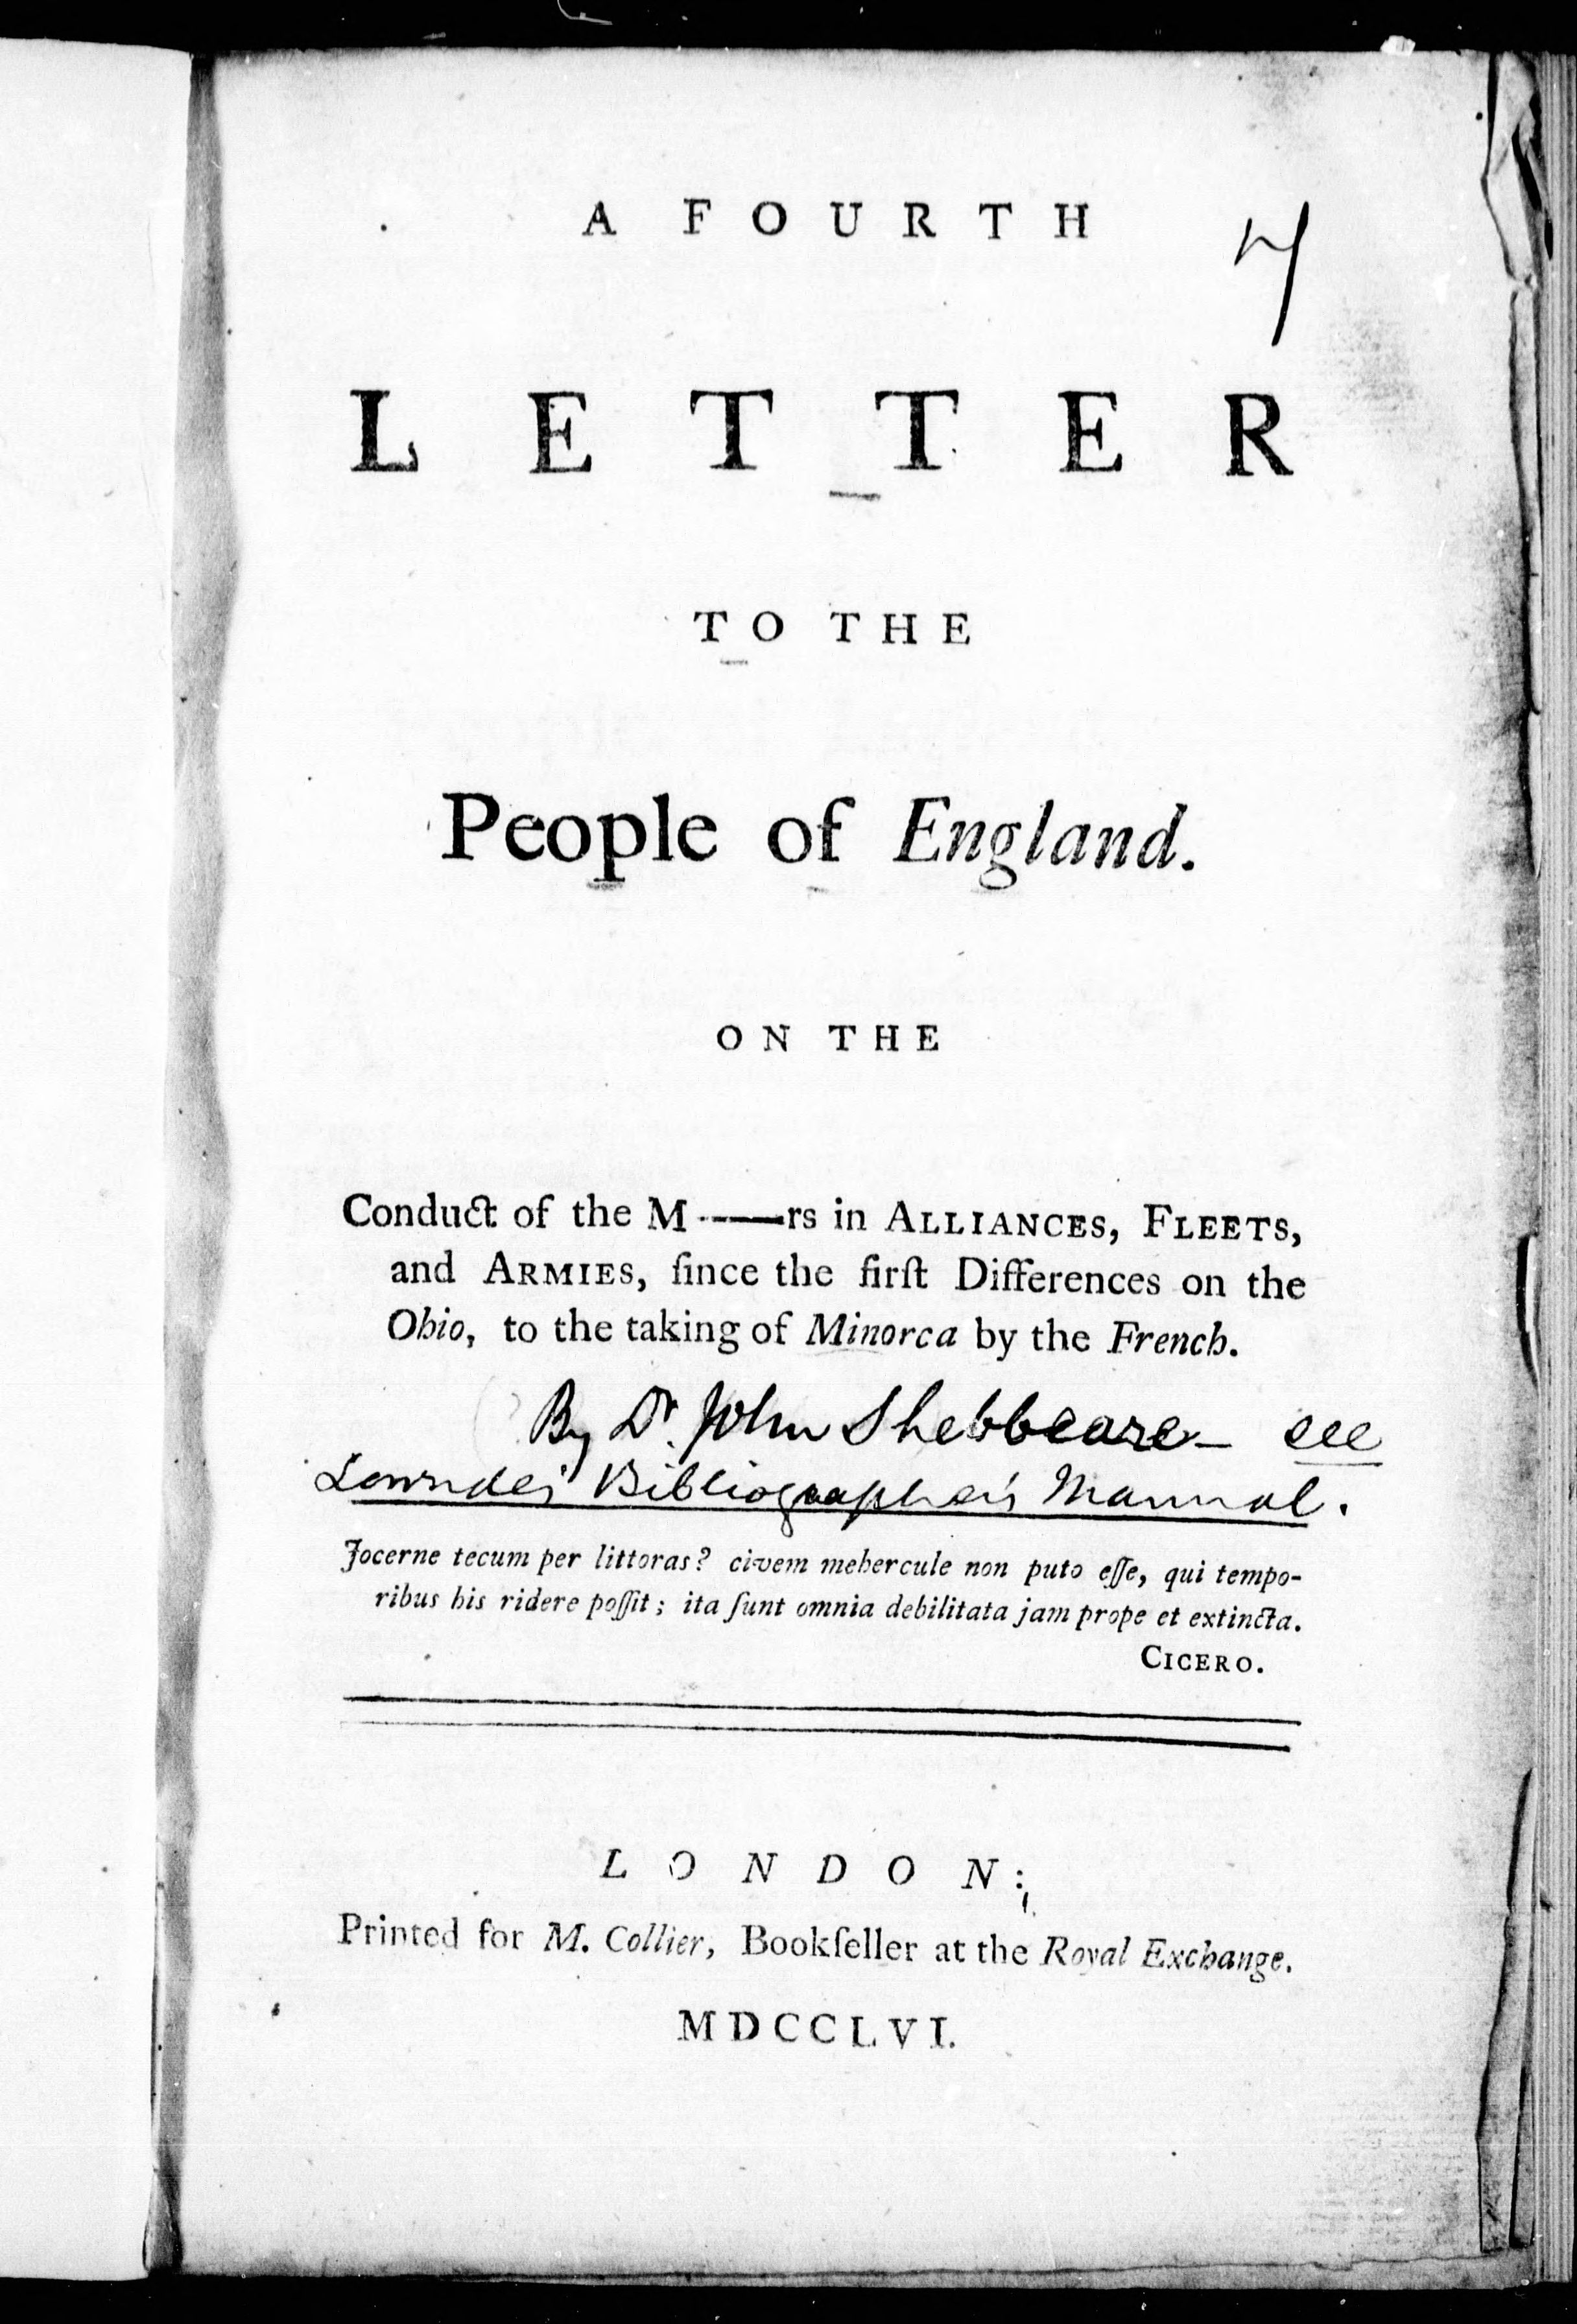 A FOURTH
7
LETTER
TO THE
People of England.
ON THE
Conduct of the M-----rs in ALLIANCES, FLEETS,
and ARMIES, ſince the firſt Differences on the
Ohio, to the taking of Minorca by the French.
By Dr. John Shebbeare— see
Lowndes' Bibliographer's Manual.
Jocerne tecum per littoras? civem mehercule non puto eſſe, qui tempo-
ribus his ridere poſſit; ita ſunt omnia debilitata jam prope et extincta.
CICERO.
LONDON:
Printed for M. Collier, Bookſeller at the Royal Exchange.
MDCCLVI.